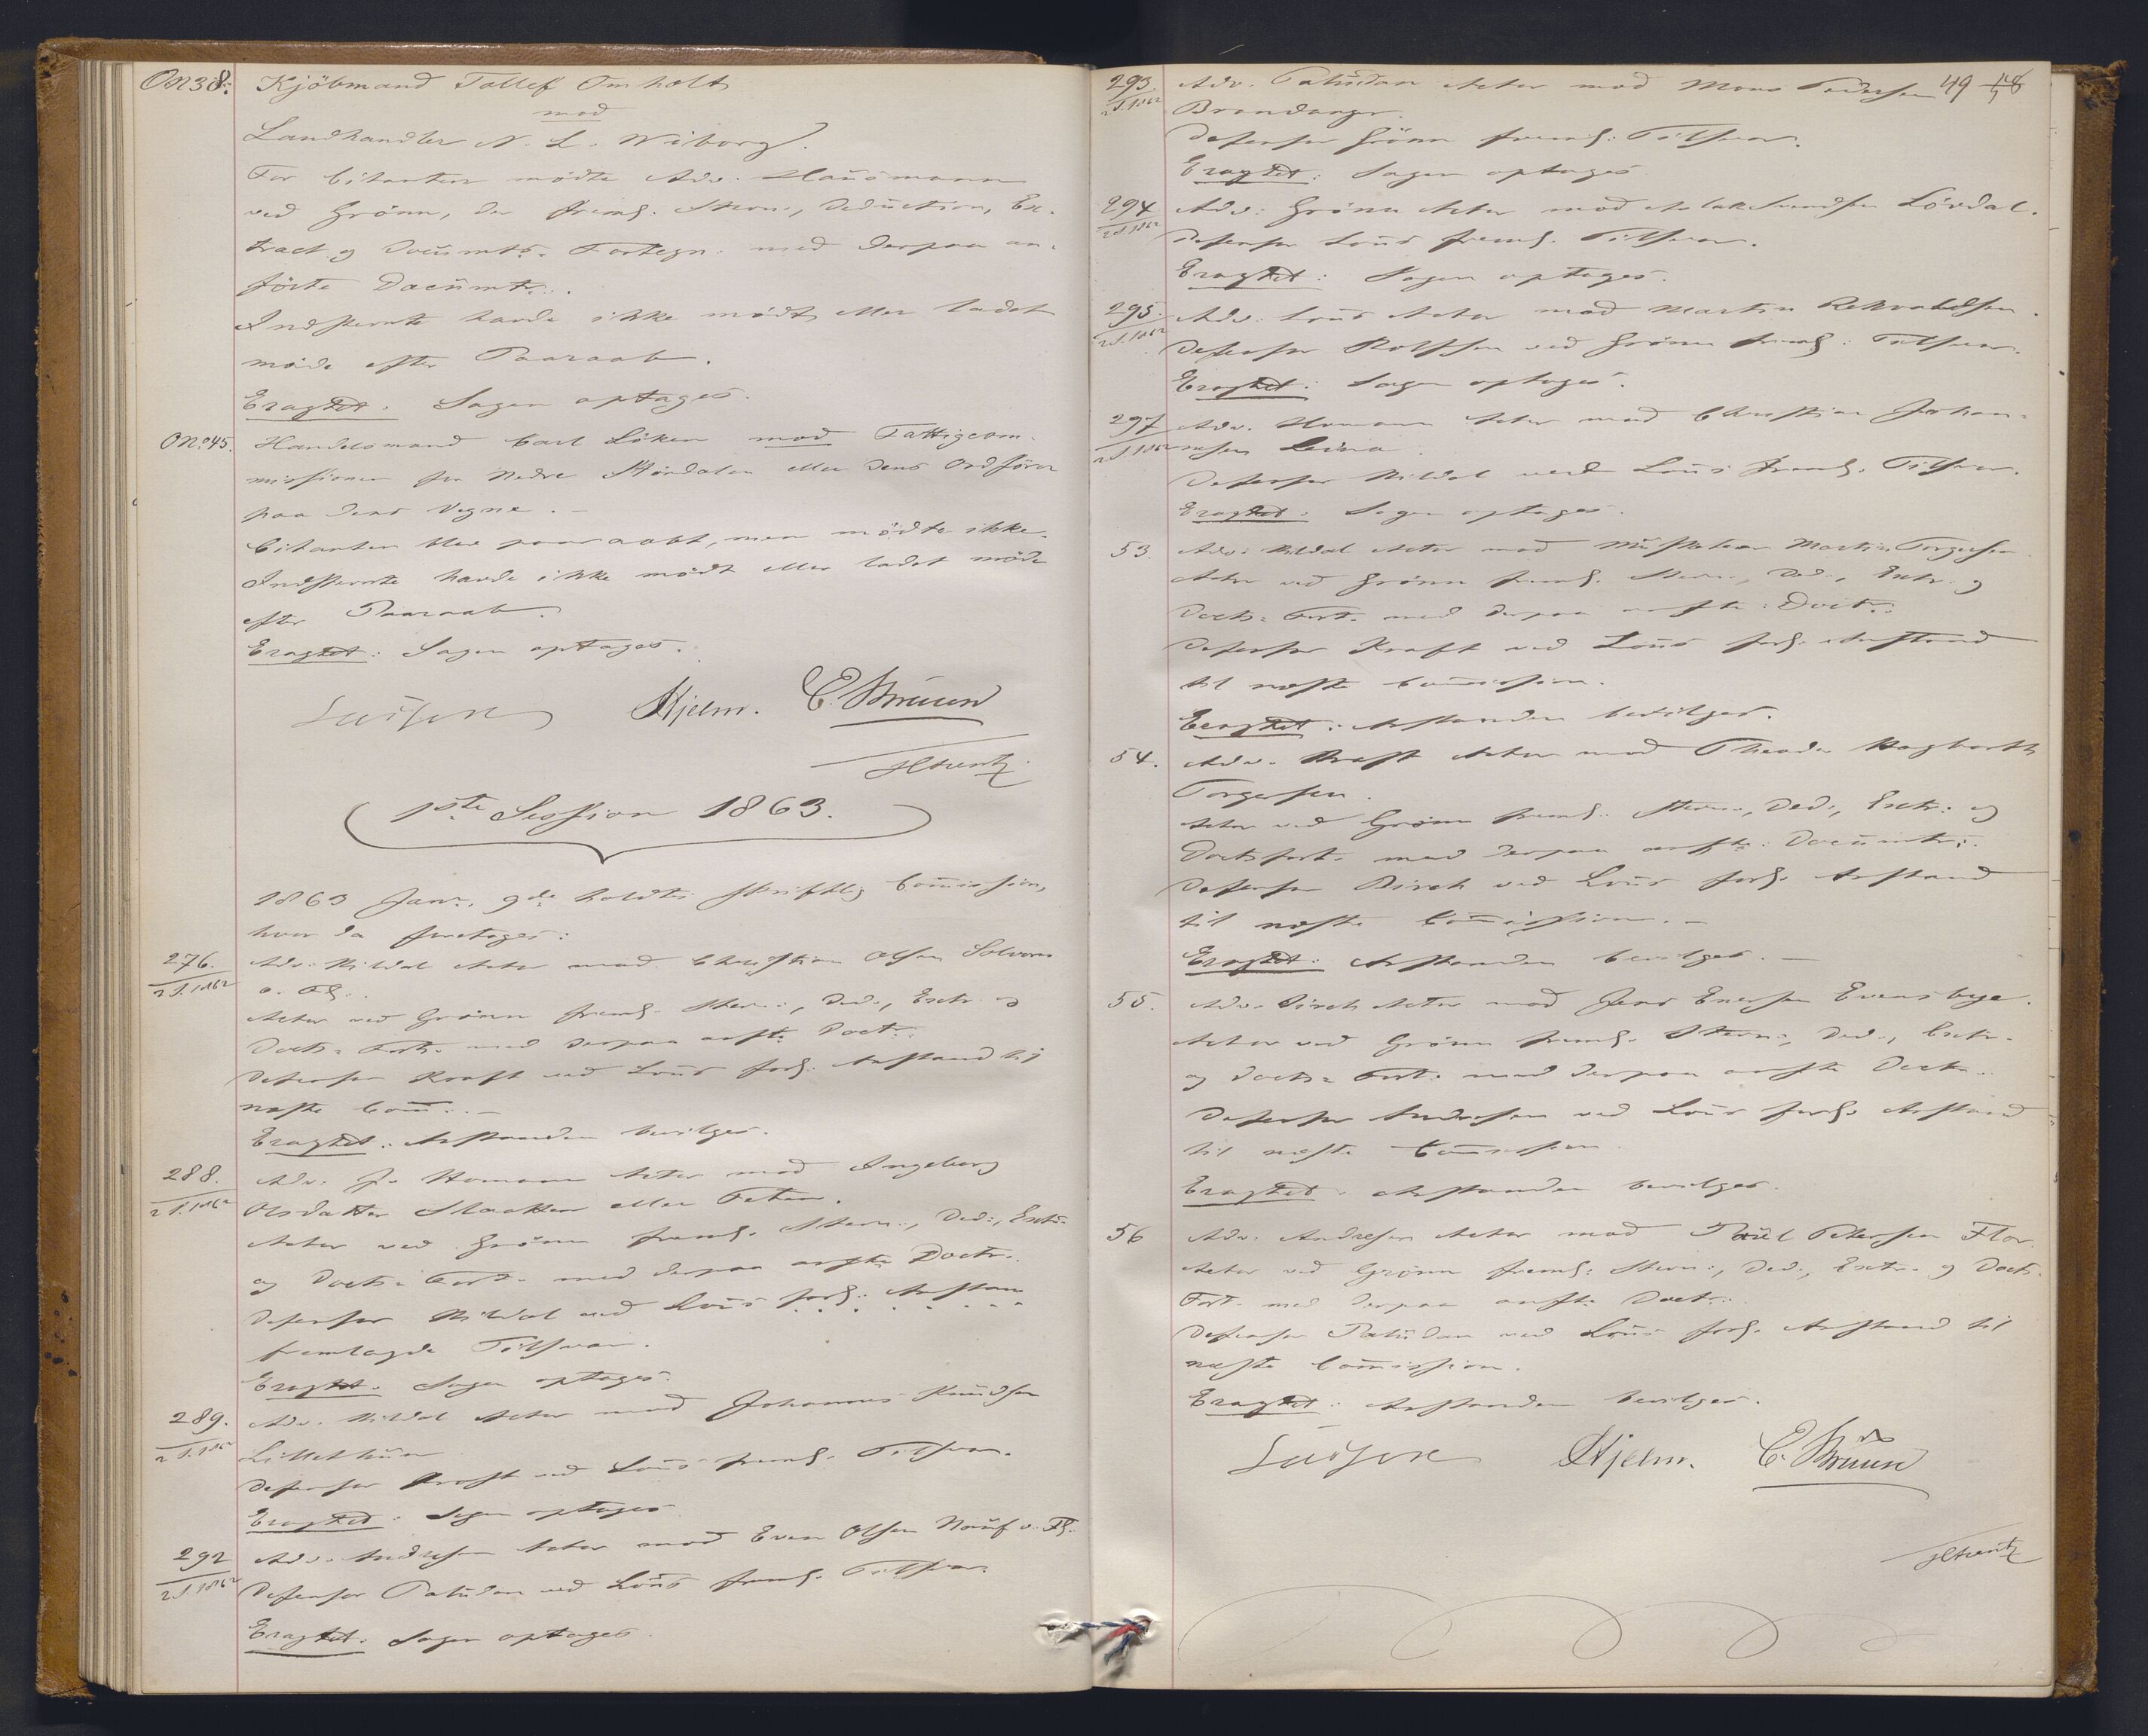 O N 38: Kjöbmand Tollef Omholt
mod
Landhandler N. L. Wiborg.
For Citanten mödte Adv. Hansmann
ved Grönn, der freml. Stevn:, Deduction, Ex-
tract og Documts. Fortegn. med derpaa an-
förte Documtr.
Indstevnte havde ikke mödt eller ladet
möde efter Paaraab.
Eragtet: Sagen optages.
O No 45. Handelsmand Carl Löken mod Fattigcom-
missionen for Nedre Stördalen eller dens Ordförer
paa dens Vegne. –
Citanten blev paaraabt, men mödte ikke.
Indstevnte havde ikke mödt eller ladet möde
efter Paaraab.
Eragtet: Sagen optages.
Hjelm. C. Bruun
1ste Session 1863.
1863 Janr. 9de holdtes skriftlig Commission,
hvor da foretoges:
276. Adv: Mildal Actor mod Christian Olsen Solvorn
2 S. 1862 o. Fl.
Actor ved Grönn freml. Stevn:, Ded:, Extr. og
Docts. Fort. med derpaa anfte Doctr.
Defensor Kraft ved Lous forl. Anstand til
næste Comm: –
Eragtet: Anstanden bevilges.
288. Adv. J. Homann Actor mod Ingeborg
2 S. 1862 Olsdatter Slaakken eller
Actor ved Grönn freml. Stevn:, Ded:, Extr:
og Docts. Fort. med derpaa anfte Doctr.
Defensor Mildal ved Lous forl: Anstan
fremlagde Tilsvar.
Eragtet: Sagen optages.
289. Adv. Mildal Actor mod Johannes Knudsen
2 S. 1862
Defensor Kraft ved Lous freml. Tilsvar.
Eragtet: Sagen optages
292 Adv. Andresen Actor mod Even Olsen o. Fl.
2 S. 1862 Defensor Paludan ved Lous freml. Tilsvar.
Eragtet: Sagen optages.
49
293. Adv. Paludan Actor mod Mons Pedersen
2 S. 1862 Brandanger.
Defensor Grönn freml: Tilsvar.
Eragtet: Sagen optages
294 Adv: Grönn Actor mod Aslak Lövdal.
2 S. 1862 Defensor Lous freml. Tilsvar.
Eragtet: Sagen optages.
295. Adv: Lous Actor mod Martin
2 S. 1862 Defensor Rolfsen ved Grönn freml: Tilsvar.
Eragtet: Sagen optages.
297 Adv. Homann Actor mod Christian Johan-
2 S. 1862 nesen
Defensor Mildal ved Lous freml. Tilsvar.
Eragtet: Sagen optages.
53. Adv: Mildal Actor mod Musketeer Martin Torgersen
Actor ved Grönn freml. Stevn:, Ded:, Extr. og
Docts. Fort. med derpaa anfte: Doctr:
Defensor Kraft ved Lous forl. Anstand
til næste Commission.
Eragtet: Anstanden bevilges.
54. Adv. Kraft Actor mod Theodor Hagbarth
Torgersen.
Actor ved Grönn freml. Stevn:, Ded:, Extr: og
Doctsfort. med derpaa anfte: Documtr:
Defensor Birch ved Lous forl. Anstand
til næste Commission. –
Eragtet: Anstanden bevilges. –
55. Adv. Birch Actor mod Jens Enersen Evensbye.
Actor ved Grönn freml. Stevn:, Ded:, Extr.
og Docts. Fort. med derpaa anfte Doctr.
Defensor Andresen ved Lous forl. Anstand
til næste Commission
Eragtet: Anstanden bevilges.
56 Adv. Andresen Actor mod Poul Petersen Flor.
Actor ved Grönn freml: Stevn:, Ded:, Extr. og Docts.
Fort. med derpaa anfte Doctr:
Defensor Paludan ved Lous forl. Anstand til
næste Commission.
Eragtet: Anstanden bevilges.
Hjelm. C. Bruun